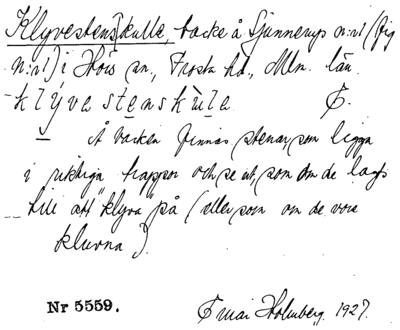 Klyvestens[kulle, backe å Sjunnerup n:r 1 (frg
n:r 1) i Hörs sn., Frosta hd., Mlm. län.
klýve stenskùle. G.
Å backen finnas stenar, som ligga
i riktiga trappor och se ut, som om de lags
till att "klyva" på (eller som om de vore
kluvna).
Nr 5559.
Gmar Holmberg 1927.